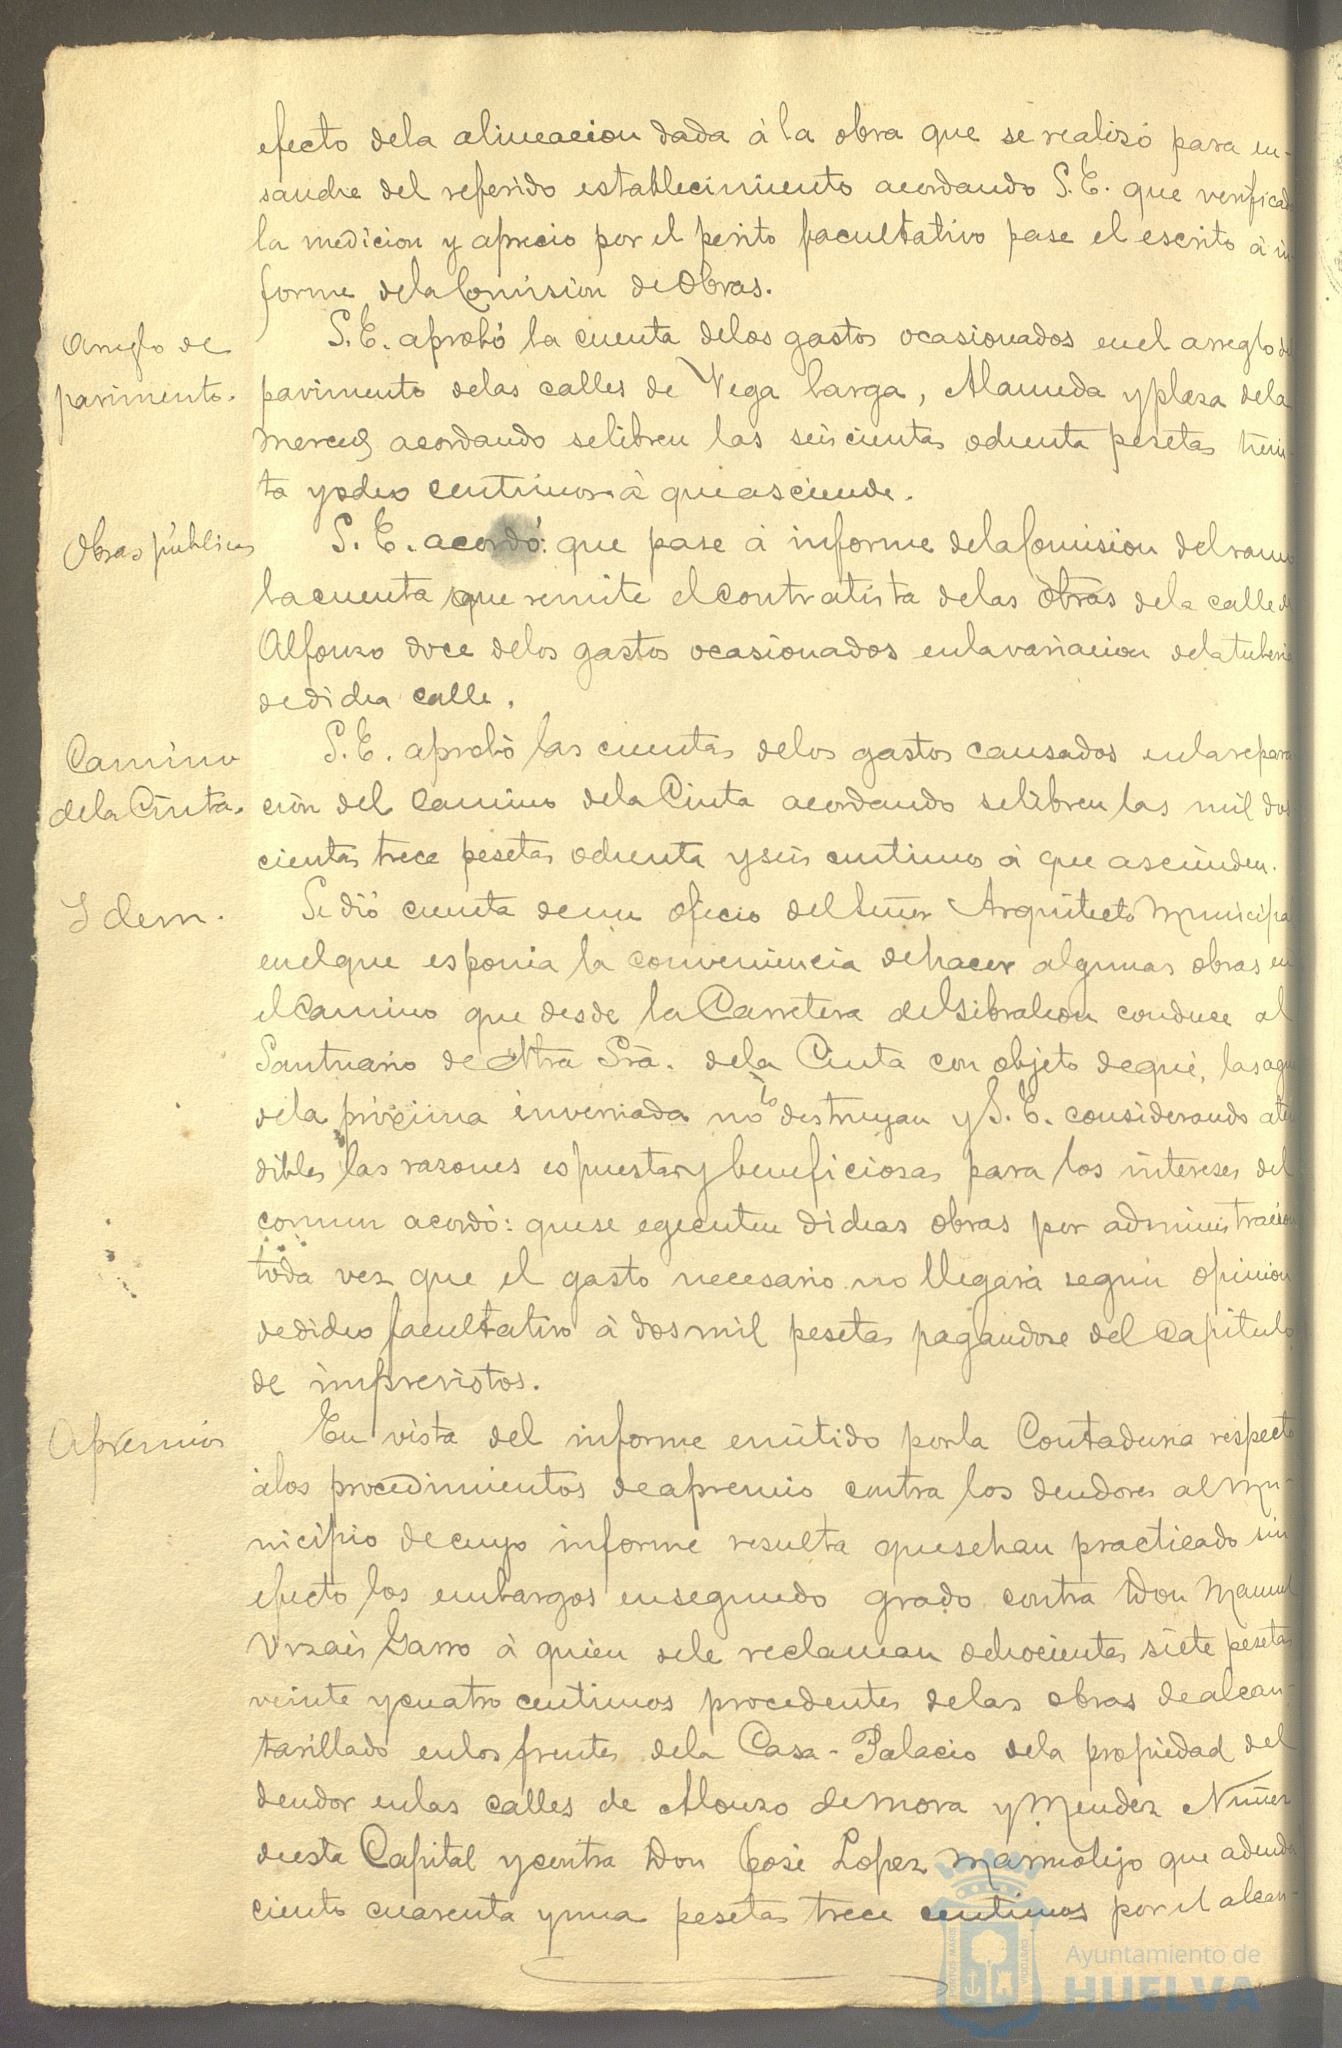 efecto dela alineacion dada á la obra que se realizó para en-
sanche del referido establecimiento acordando S.E. que verificada
la medicion y aprecio por el perito facultativo pase el escrito á in
forme dela Comision de Obras.
Arreglo de
pavimento.
S.E. aprobó la cuenta delos gastos ocasionados enel arreglo del
pavimento delas calles de Vega larga, Alameda y plaza dela
Merced acordando selibren las seiscientas ochenta pesetas trein-
ta yocho centimos á que asciende.
Obras públicas
S.E. acordó: que pase á informe dela Comision del ramo
la cuenta que remite el contratista delas obras dela calle de
Alfonso doce delos gastos ocasionados enla variacion dela tuberia
de dicha calle.
Camino
dela Cinta.
S.E. aprobó las cuentas delos gastos causados enla repara
ción del Camino dela Cinta acordando selibren las mil dos
cientas trece pesetas ochenta y seis centimos á que ascienden.
Idem.
Se dió cuenta deun oficio del Señor Arquitecto Municipal
enelque esponia la conveniencia dehacer algunas obras en
el Camino que desde la Carretera de Gibraleon conduce al
Santuario de Ntra Sra. dela Cinta con objeto de que, las aguas
dela próxima invernada no lo destruyan y S.E. considerando aten
dibles las razones espuestas y beneficiosas para los intereses del
comun acordó: quese egecuten dichas obras por administracion
toda vez que el gasto necesario no llegará segun opinion
de dicho facultativo á dos mil pesetas pagandose del Capitulo
de imprevistos.
Apremios
En vista del informe emitido porla Contaduria respecto
álos procedimientos de apremio contra los deudores al Mu-
nicipio de cuyo informe resulta quesehan practicado sin
efecto los embargos ensegundo grado contra Don Manuel
Vrzais Garro á quien sele reclaman ochocientas siete pesetas
veinte ycuatro centimos procedentes delas obras dealcan-
tarillado enlos frentes dela Casa-Palacio dela propiedad del
deudor enlas calles de Alonso de Mora y Mendez Nuñez
de esta Capital ycontra Don José Lopez Marmolejo que adeuda
ciento cuarenta yuna pesetas trece centimos por el alcan-
Ayuntamiento de
HUELVA